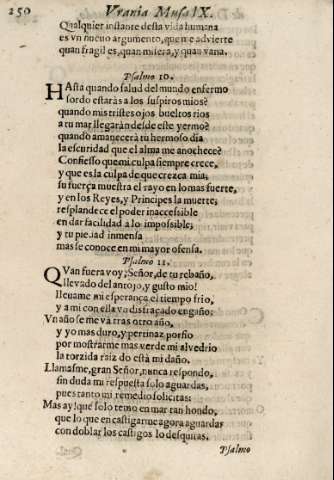 250 Vrania Musa IX.
Qualquier instante desta vida humana
es vn nueuo argumento, que me aduierte
quan fragil es, quan misera, y quan vana.
Psalmo 10.
HAsta quando salud del mundo enfermo
sordo estarás a los suspiros mios?
quando mis tristes ojos bueltos rios
a tu mar llegarán desde este yermo?
quando amanecerá tu hermoso dia
la escuridad que el alma me anochece?
Confiesso que mi culpa siempre crece,
y que es la culpa de que crezca mia;
su fuerça muestra el rayo en lo mas fuerte,
y en los Reyes, y Principes la muerte;
resplandece el poder inaccessible
en dar facilidad a lo impossible;
y tu piedad inmensa
mas se conoce en mi mayor ofensa.
Psalmo 11.
QVan fuera voy; Señor, de tu rebaño,
lleuado del antojo, y gusto mio!
lleuame mi esperança el tiempo frio,
y a mi con ella vn disfraçado engaño:
Vn año se me vá tras otro año,
y yo mas duro, y pertinaz porfio
por mostrarme mas verde mi alvedrio
la torzida raiz do está mi daño.
Llamasme, gran Señor, nunca respondo,
sin duda mi respuesta solo aguardas,
pues tanto mi remedio solicitas:
Mas ay! que solo temo en mar tan hondo,
que lo que en castigarme agora aguardas
con doblar los castigos lo desquitas.
Psalmo